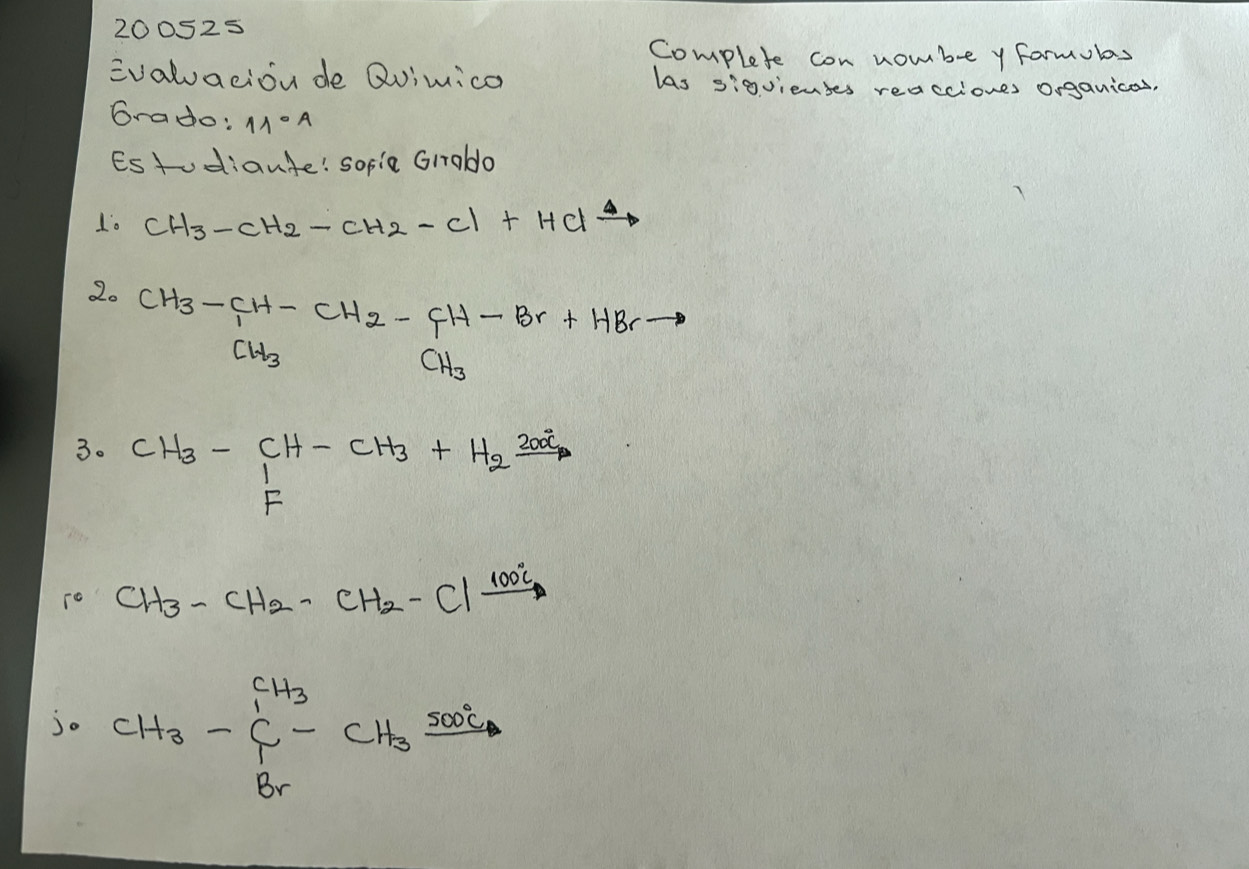 200525
Evaluación de Quimica
Grado: 11° A
Estudiante: Sofía Giraldo
Complete con nombre y formulas
las siguientes reacciones organicas.
1. CH3 – CH2 – CH2 – Cl + HCl Δ→
2. CH3 – CH – CH2 – CH – Br + HBr →
CH3 CH3
3. CH3 – CH – CH3 + H2 200°C→
F
CH3 – CH2 – CH2 – Cl 100°C→
CH3
CH3 – C – CH3 500°C→
Br